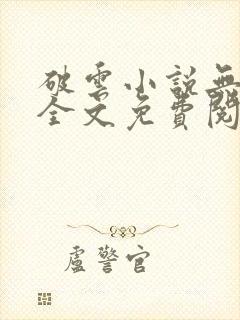 破雲小說無
全文免費閱
盧警官